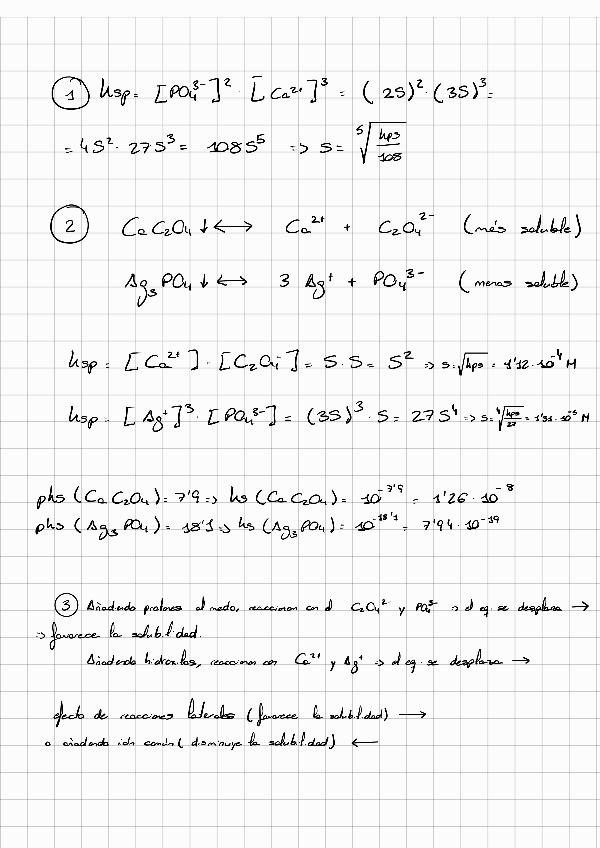 1 Ksp = [PO₄³⁻]² · [Ca²⁺]³ = (2S)² · (3S)³ =
= 4S² · 27S³ = 108S⁵ => S = ⁵√(kps/108)
2 CaC₂O₄↓ ⟷ Ca²⁺ + C₂O₄²⁻ (más soluble)
Ag₃PO₄↓ ⟷ 3 Ag⁺ + PO₄³⁻ (menos soluble)
Ksp = [Ca²⁺] · [C₂O₄⁻] = S · S = S² => s = √kps = 1'12 · 10⁻⁴ M
Ksp = [Ag⁺]³ · [PO₄³⁻] = (3S)³ · S = 27S⁴ => s = ⁴√(kps/27) = 1'31 · 10⁻⁵ M
pks (CaC₂O₄) = 7'9 => ks (CaC₂O₄) = 10⁻⁷'⁹ = 1'26 · 10⁻⁸
pks (Ag₃PO₄) = 18'1 => ks (Ag₃PO₄) = 10⁻¹⁸'¹ = 7'94 · 10⁻¹⁹
3 Añadiendo protones al medio, reaccionan con el C₂O₄²⁻ y PO₄³⁻ => el eq. se desplaza →
=> favorece la solubilidad.
Añadiendo hidroxilos, reaccionan con Ca²⁺ y Ag⁺ => el eq. se desplaza →
efecto de reacciones laterales (favorece la solubilidad) →
o añadiendo ión común (disminuye la solubilidad) ←